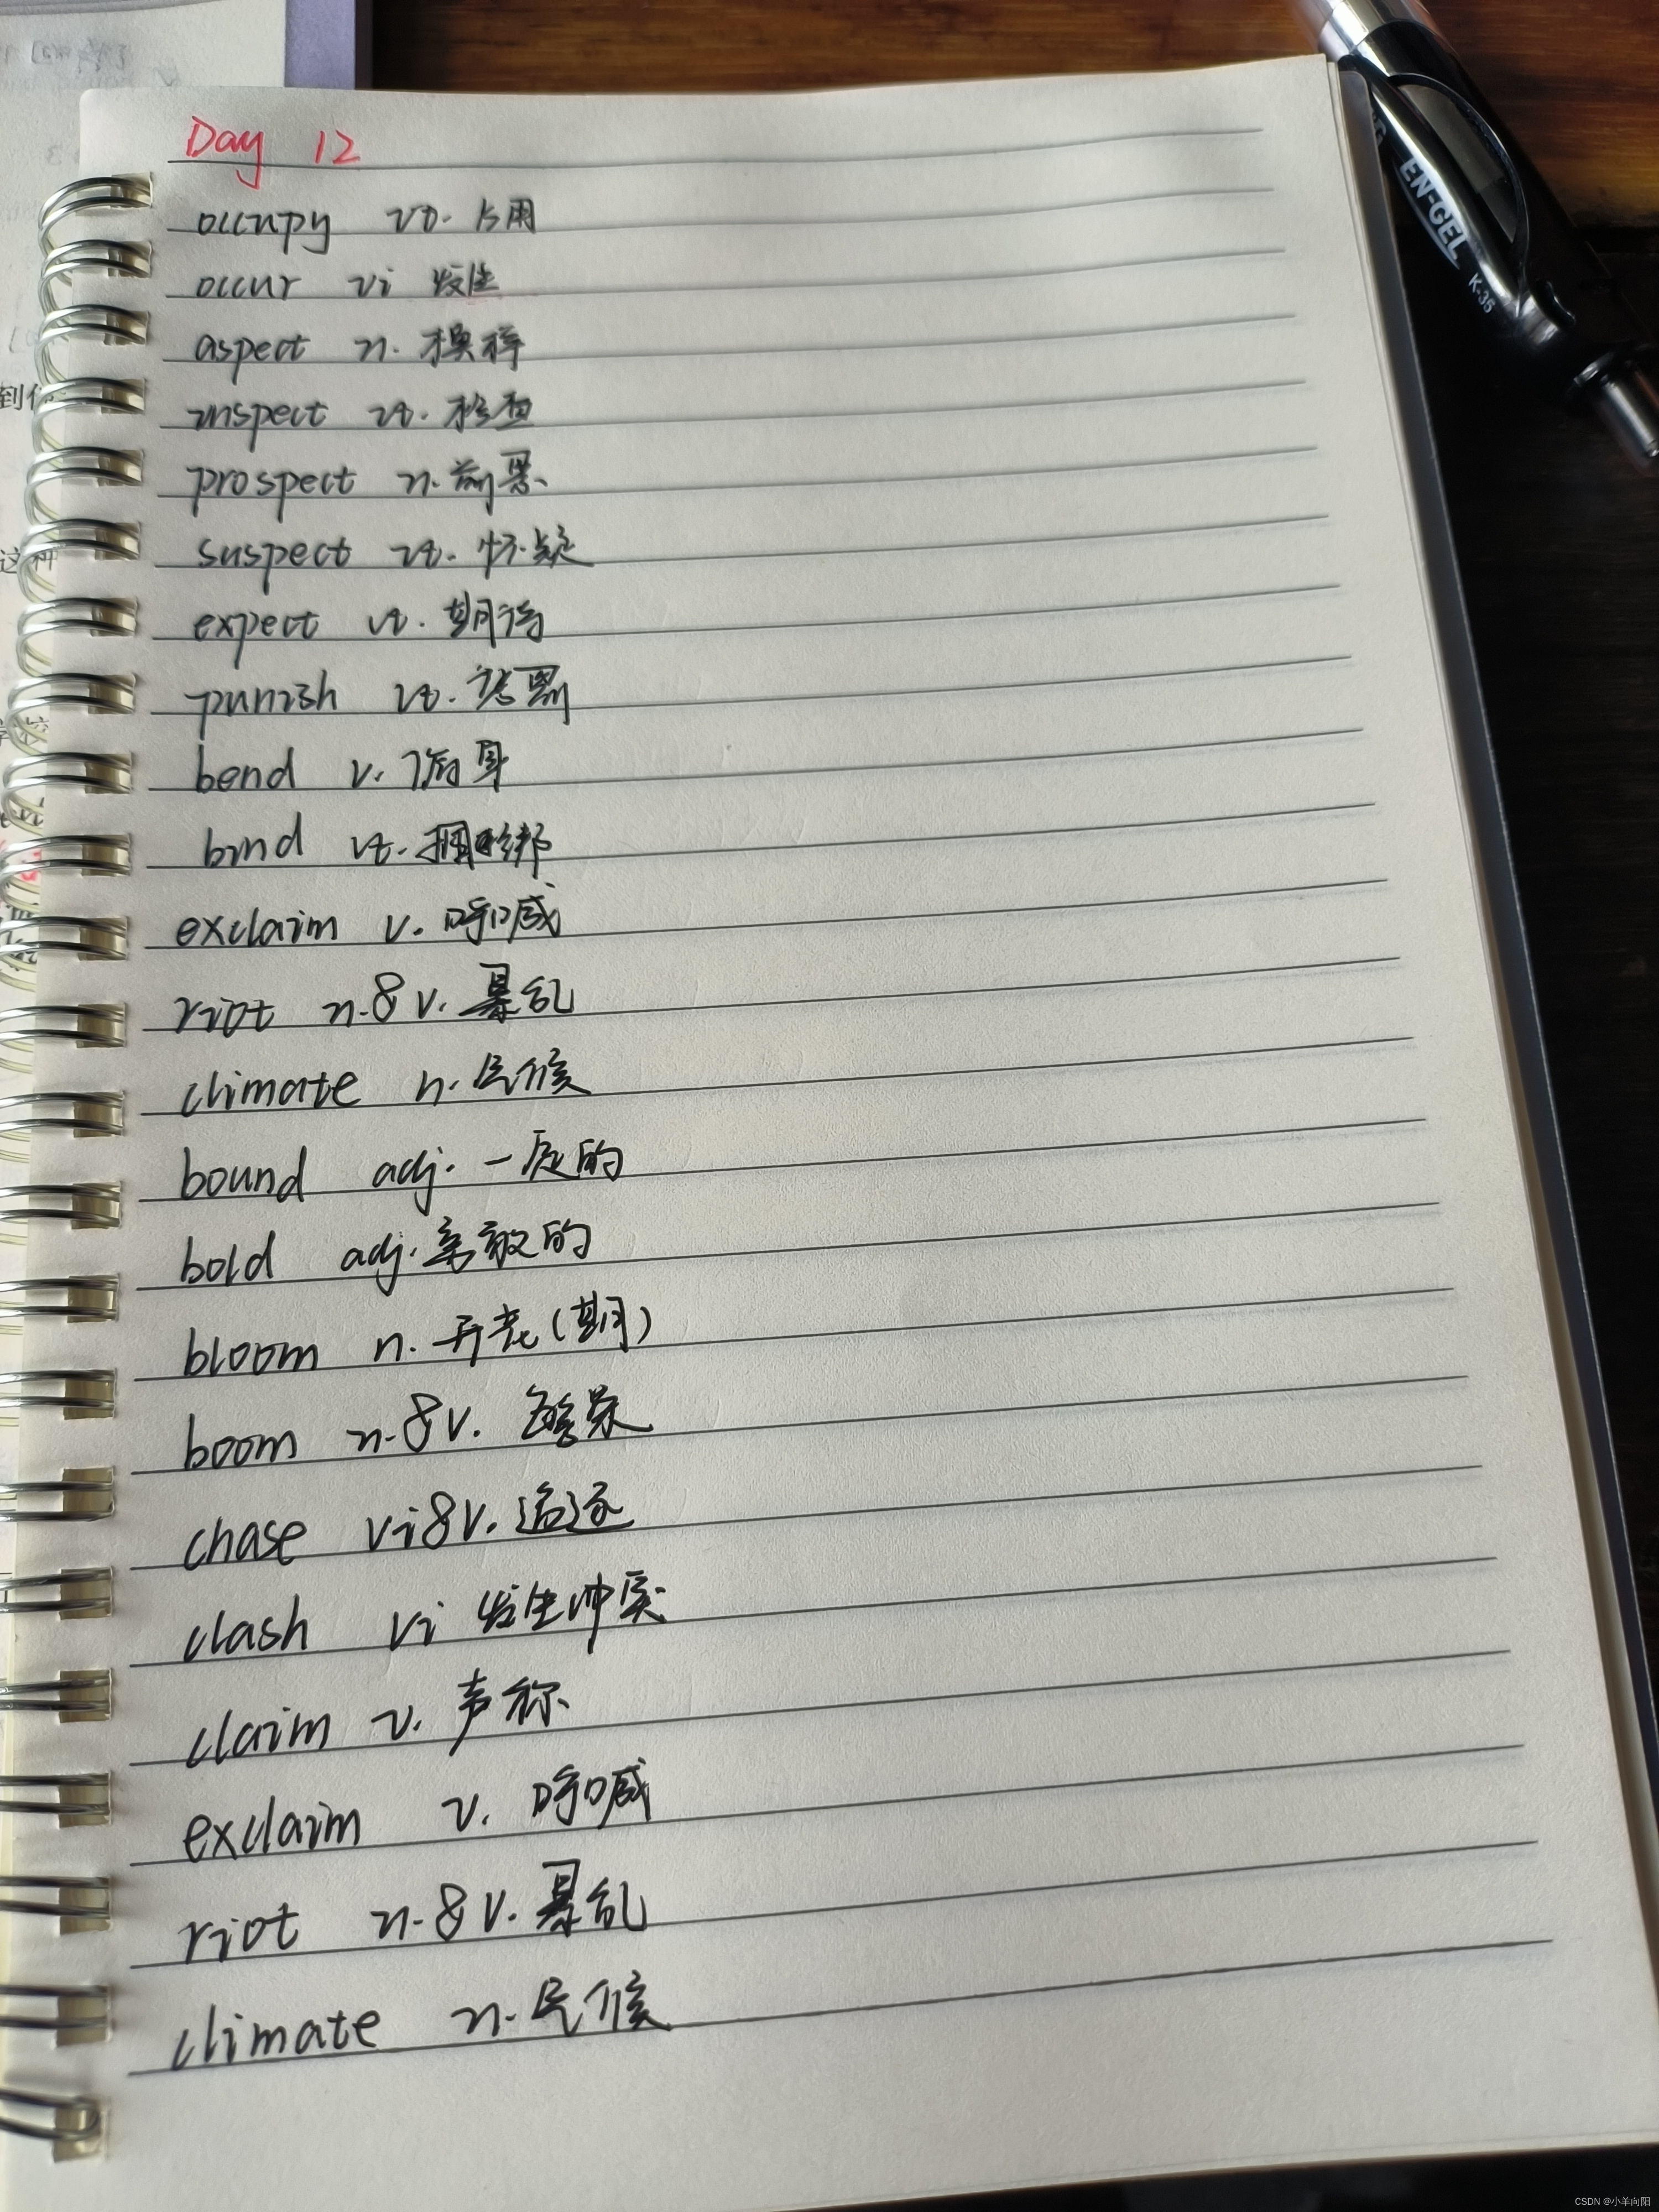 Day 12
occupy vt. 占用
occur vi 发生
aspect n. 模样
inspect vt. 检查
prospect n. 前景
suspect vt. 怀疑
expect vt. 期待
punish vt. 惩罚
bend v.
bind vt. 捆绑
exclaim v. 呼喊
riot n.&v. 暴乱
climate n. 气候
bound adj. 一定的
bold adj. 勇敢的
bloom n. 开花(期)
boom n.&v. 繁荣
chase vi&v. 追逐
clash vi 发生冲突
claim v. 声称
exclaim v. 呼喊
riot n.&v. 暴乱
climate n. 气候
EN-GEL
K-35
到
这种
CSDN @小羊向阳